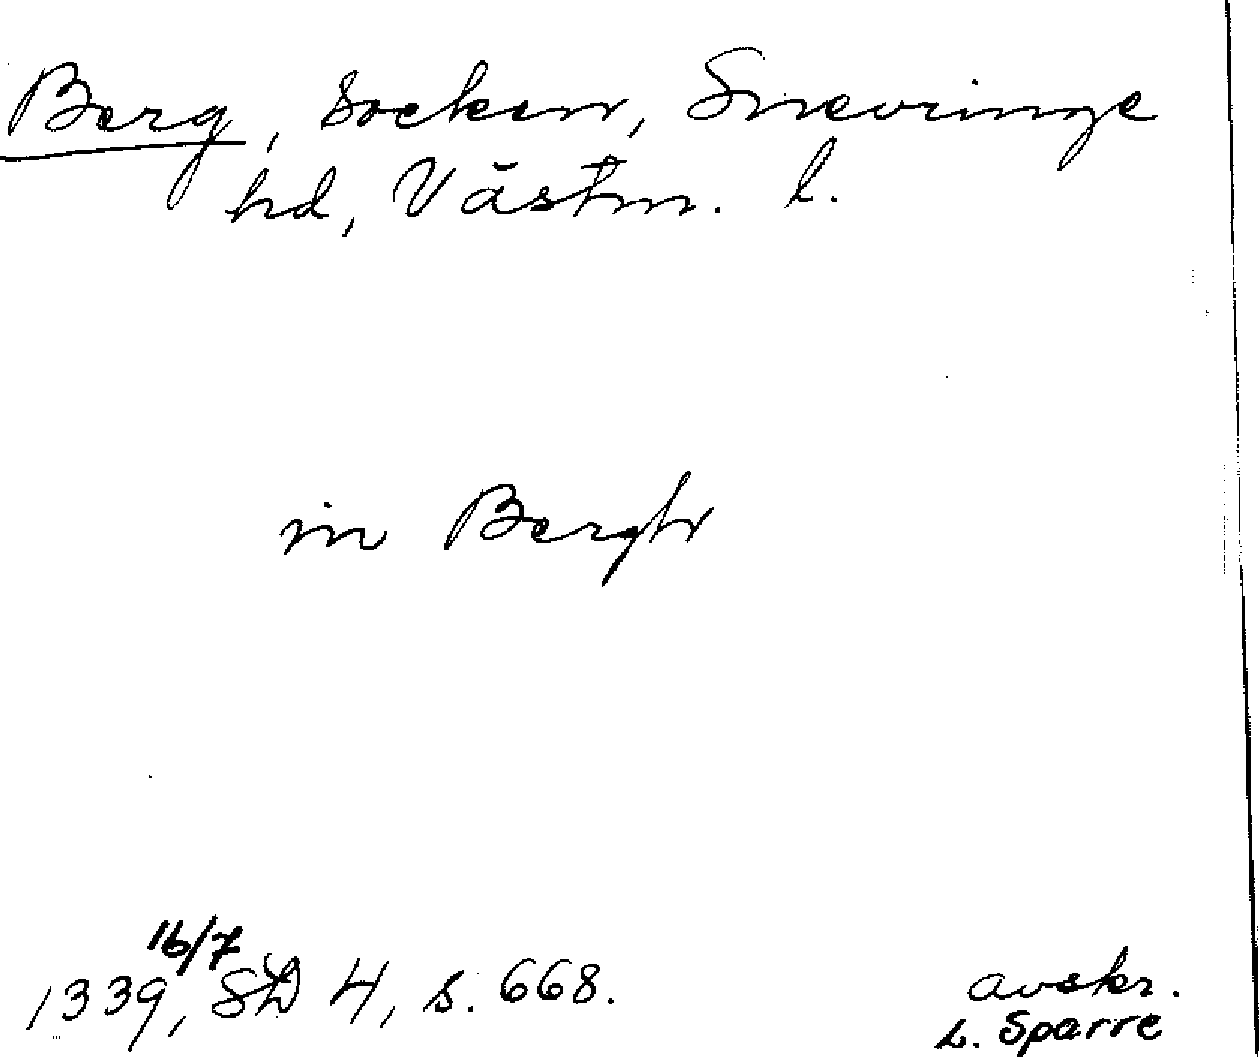 Berg, socken, Snevringe
hd, Västm. l.
in Bergh
16/7
1339, SD 4, s. 668.
avskr.
L. Sparre